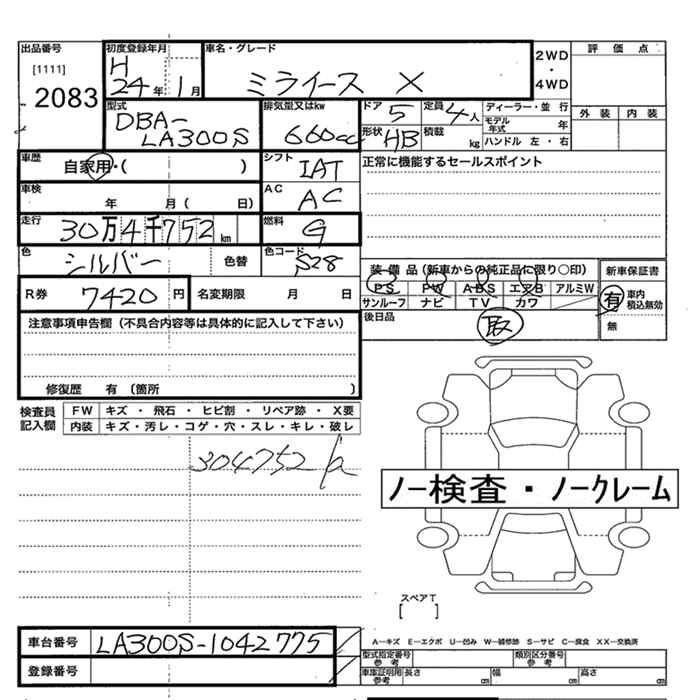 出品番号 初度登録年月 車名・グレード 2WD ・ 4WD 評価点
[1111] H 24年 1月 ミライース X
2083 外装 内装
型式 DBA-LA300S 排気量又はkw 660cc ドア 5 定員 4人 ディーラー・並行
モデル年式 年
形状 HB 積載 kg ハンドル 左・右
車歴 自家用・( ) シフト IAT 正常に機能するセールスポイント
車検 年 月 ( 日) AC AC
走行 30万4千752km 燃料 G
色 シルバー 色替 色コード S28
装備品(新車からの純正品に限り○印) 新車保証書
R券 7420円 名変期限 月 日 PS PW ABS エアB アルミW 有 車内積込無効
サンルーフ ナビ TV カワ
注意事項申告欄(不具合内容等は具体的に記入して下さい) 後日品 取 無
修復歴 有 (箇所 )
検査員記入欄 FW キズ・飛石・ヒビ割・リペア跡・X要
内装 キズ・汚レ・コゲ・穴・スレ・キレ・破レ
304752
ノー検査・ノークレーム
スペアT
[ ]
車台番号 LA300S-1042775 A−キズ E−エクボ U−凹み W−補修跡 S−サビ C−腐食 XX−交換済
型式指定番号 参考 類別区分番号 参考
登録番号 車庫証明用 参考 長さ cm 幅 cm 高さ cm